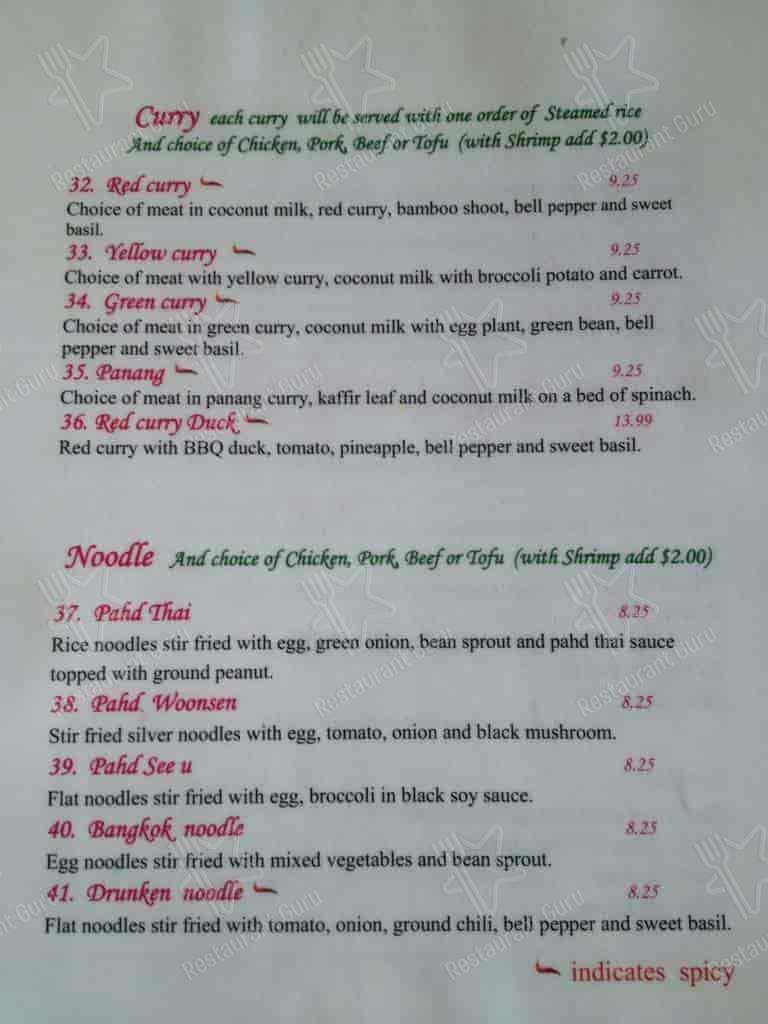 Curry each curry will be served with one order of Steamed rice
And choice of Chicken, Pork, Beef or Tofu (with Shrimp add $2.00)
32. Red curry 9.25
Choice of meat in coconut milk, red curry, bamboo shoot, bell pepper and sweet
basil.
33. Yellow curry 9.25
Choice of meat with yellow curry, coconut milk with broccoli potato and carrot.
34. Green curry 9.25
Choice of meat in green curry, coconut milk with egg plant, green bean, bell
pepper and sweet basil.
35. Panang 9.25
Choice of meat in panang curry, kaffir leaf and coconut milk on a bed of spinach.
36. Red curry Duck 13.99
Red curry with BBQ duck, tomato, pineapple, bell pepper and sweet basil.
Noodle And choice of Chicken, Pork, Beef or Tofu (with Shrimp add $2.00)
37. Pahd Thai 8.25
Rice noodles stir fried with egg, green onion, bean sprout and pahd thai sauce
topped with ground peanut.
38. Pahd Woonsen 8.25
Stir fried silver noodles with egg, tomato, onion and black mushroom.
39. Pahd See u 8.25
Flat noodles stir fried with egg, broccoli in black soy sauce.
40. Bangkok noodle 8.25
Egg noodles stir fried with mixed vegetables and bean sprout.
41. Drunken noodle 8.25
Flat noodles stir fried with tomato, onion, ground chili, bell pepper and sweet basil.
indicates spicy
Restaurant Guru